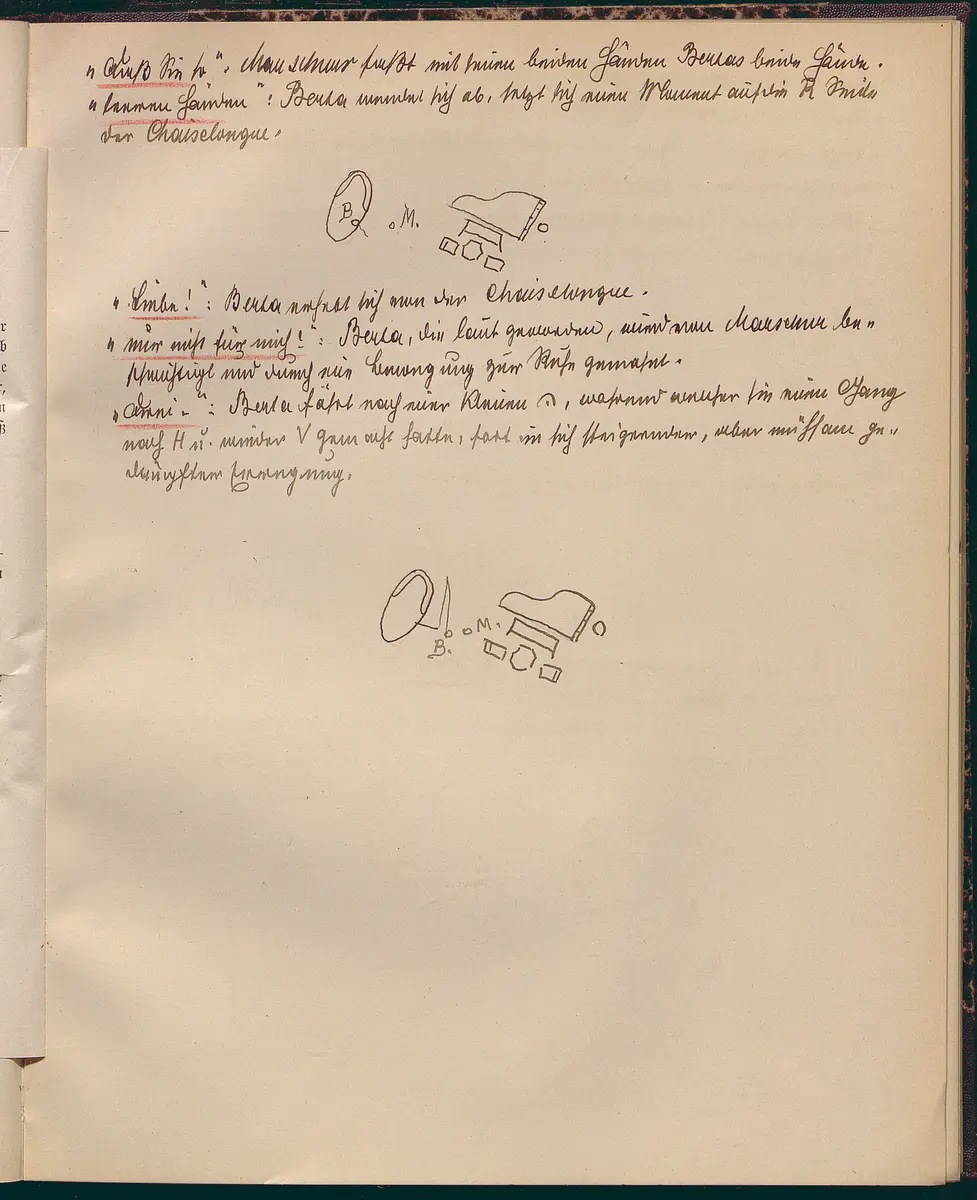 „Daß Sie so“: Marschner faßt mit seinen beiden Händen Bertas beide Hände.
„leeren Händen“: Berta wendet sich ab, setzt sich einen Moment auf die R Seite
der Chaiselongue.
B. M.
„Liebe!“: Berta erhebt sich von der Chaiselongue.
„nur nicht für mich!“: Berta, die laut geworden, wird von Marschner be-
schwichtigt und durch eine Bewegung zur Ruhe gemahnt.
Berta fährt nach einer kleinen während welcher sie einen Gang
nach H u. wieder V gemacht hatte, fort in sich steigernder, aber mühsam ge-
dämpfter Erregung.
M.
B.